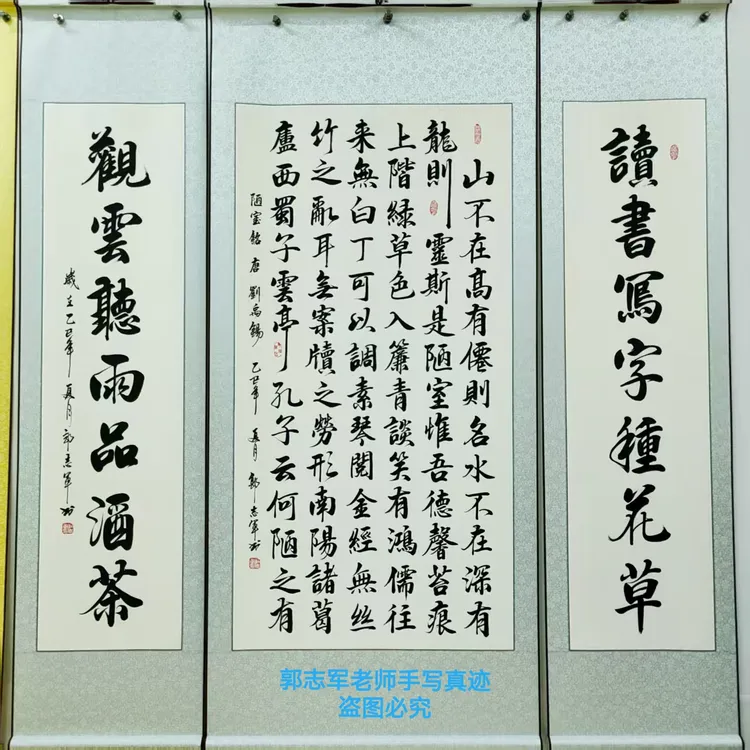 讀書寫字種花草
山不在高有僊則名水不在深有
龍則靈斯是陋室惟吾德馨苔痕
上階緑草色入簾青談笑有鴻儒往
来無白丁可以調素琴閱金經無丝
竹之亂耳無案牘之勞形南陽諸葛
廬西蜀子雲亭孔子云何陋之有
陋室銘 唐 劉禹錫 乙巳年 夏月 郭志軍书
觀雲聽雨品酒茶
歲在乙巳年 夏月 郭志軍书
郭志军老师手写真迹
盗图必究